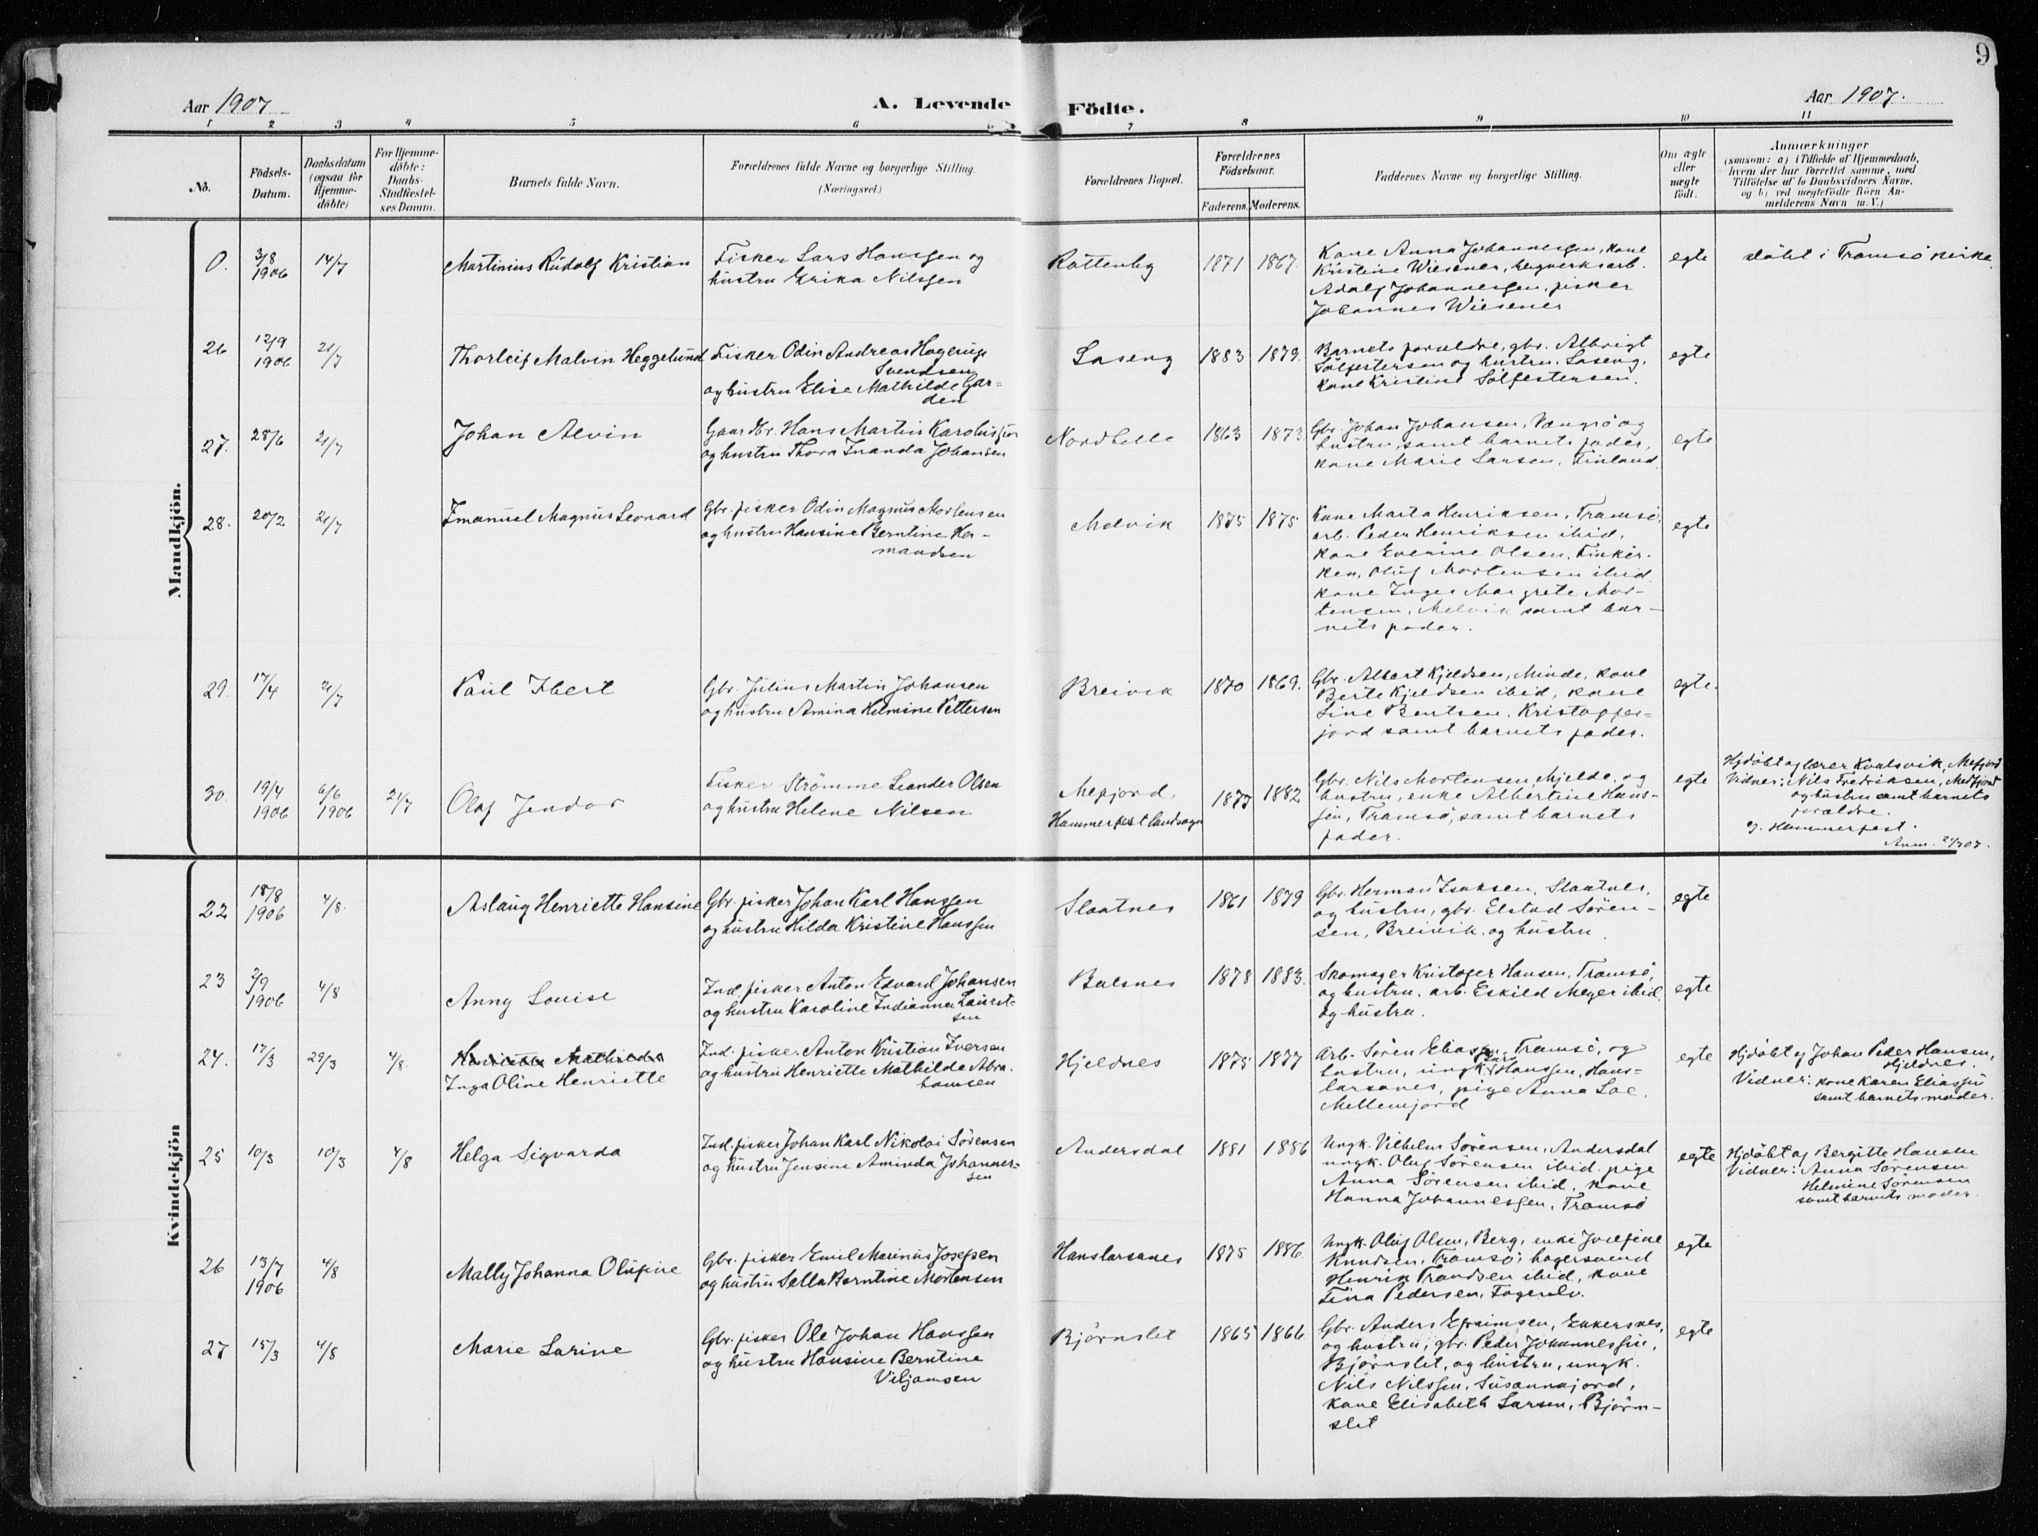 9
Aar 1907
A. Levende Födte.
Aar 1907.
1 2 3 4 5 6 7 8 9 10 11
No.
Födsels-
Datum.
Daabsdatum
(ogsaa for
Hjemme-
döbte)
For Hjemme-
döbte:
Daabs-
Stadfæstel-
ses Datum.
Barnets fulde Navn.
Forældrenes fulde Navne og borgerlige Stilling.
(Næringsvei.)
Forældrenes Bopæl.
Forældrenes
Födselsaar.
Faderens. Moderens.
Faddernes Navne og borgerlige Stilling.
Om ægte
eller
uægte
födt.
Anmærkninger
(saasom: a) i Tilfælde af Hjemmedaab,
hvem der har forrettet samme, med
Tilföielse af to Daabsvidners Navne,
og b) ved uegtefödte Börn An-
melderens Navn m. V.)
Mandkjön.
0.
3/8
1906
14/7
Martinius Rudolf Kristian
Fisker Lars Hansen og
hustru Erika Nilssen
Rottenby
1871 1867.
Kone Anna Johannessen, kone
Kristine Wiesener, bergverksarb.
Adolf Johannessen, fisker
Johannes Wiesener
egte
döbt i Tromsø kirke.
26
12/9
1906
21/7
Thorleif Malvin Heggelund
Fisker Odin Andreas Hagerup
Svendsen
og hustru Elise Mathilde Gar-
den
Laseng
1883 1879.
Barnets forældre, gbr. Albrigt
Sølfestersen og hustru, Laseng,
kone Kristine Sølfestersen.
egte
27.
28/6
21/7
Johan Alvin
Gaardbr. Hans Martin Karolius
og hustru Thora Inanda Johansen
Nordbelle
1863 1873
Gbr. Johan Johansen, Vængsø og
hustru, samt barnets fader,
kone Marie Larsen, Finland.
egte
28.
20/2
21/7
Imanuel Magnus Leonard
Gbr. fisker Odin Magnus Mortensen
og hustru Hansine Berntine Her-
mandsen
Melvik
1875 1875
Kone Marta Henriksen, Tromsø,
arb. Peder Henriksen ibid,
kone Evenine Olsen, Finkir-
ken, Oluf Mortensen ibid
kone Inger Margrete Mor-
tensen, Melvik samt bar-
nets fader.
egte
29.
17/4
21/7
Paul Ibert
Gbr. Julius Martin Johansen
og hustru Amina Helmine Pettersen
Breivik
1870 1869.
Gbr. Albert Kjeldsen, Minde, kone
Berte Kjeldsen ibid, kone
Line Bentsen, Kristoffer-
jord samt barnets fader.
egte.
30.
19/4
1906
6/6
1906
21/7
Olaf Jendor
Fisker Strømme Leander Olsen
og hustru Helene Nilsen
Mefjord,
Hammerfest landsogn
1877 1882
Gbr. Nils Mortensen Mjelde, og
hustru, enke Albertine Hans-
sen, Tromsø, samt barnets
fader.
egte
Hjdöbt af lærer Kvalsvik, Mefjord
Vidner: Nils Fredriksen, Mefjord
og hustru samt barnets
forældre.
Hammerfest.
Anm. 21/7 07.
Kvindekjön
22
18/8
1906
4/8.
Aslaug Henriette Hansine
Gbr. fisker Johan Karl Hanssen
og hustru Hilda Kristine Hanssen
Slaatnes
1861 1879
Gbr. Herman Isaksen, Slaatnes,
og hustru, gbr. Elstad Søren-
sen, Breivik, og hustru
egte
23
2/9
1906
4/8
Anny Louise
Ind. fisker Anton Edvard Johansen
og hustru Karoline Indianna Laurit-
sen
Balsnes
1878 1883.
Skomager Kristoffer Hansen, Tromsø,
og hustru, arb. Eskild Meyer ibid
og hustru.
egte
24.
17/3
29/3
4/8.
Henriette Mathilde
Inga Oline Henriette
Ind. fisker Anton Kristian Iversen
og hustru Henriette Mathilde Abra-
hamsen
Hjeldnes
1875 1877
Arb. Søren Eliassen, Tromsø, og
hustru, ungk. Hanssen, Hans-
larsanes, pige Anna Loe,
Mellemjord
egte
Hjdöbt af Johan Peder Hansen,
Hjeldnes.
Vidner: kone Karen Eliassen
samt barnets moder.
25
10/3
10/3
4/8
Helga Sigvarda
Ind. fisker Johan Karl Nikolai Sørensen
og hustru Jensine Aminda Johannes-
sen
Andersdal
1881 1886
Ungk. Vilhelm Sørensen, Andersdal
ungk. Oluf Sørensen ibid, pige
Anna Sørensen ibid, kone
Hanna Johannessen, Tromsø
egte
Hjdöbt af Bergitte Hansen
Vidner: Anna Sørensen
Helmine Sørensen
samt barnets moder.
26
13/7
1906
4/8
Mally Johanna Olufine
Gbr. fisker Emil Marinus Josefsen
og hustru Sella Berntine Mortensen
Hanslarsanes
1875 1886.
Ungk. Oluf Olsen, Berg, enke Josefine
Knudsen, Tromsø, bagersvend
Henrik Trondsen ibid, kone
Fina Pedersen, Fagerelv.
egte
27
15/3
4/8
Marie Larine
Gbr. fisker Ole Johan Hanssen
og hustru Hansine Berntine
Viljamsen
Bjørnslet
1865 1866
Gbr. Anders Efraimsen, Enkersnes,
og hustru, gbr. Peder Johannessen,
Bjørnslet, og hustru, ungk.
Nils Nilssen, Susannajord,
kone Elisabeth Larsen, Bjørn-
slet
egte